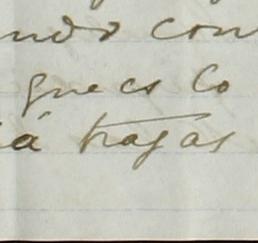 ndo con
que es lo
á hagas